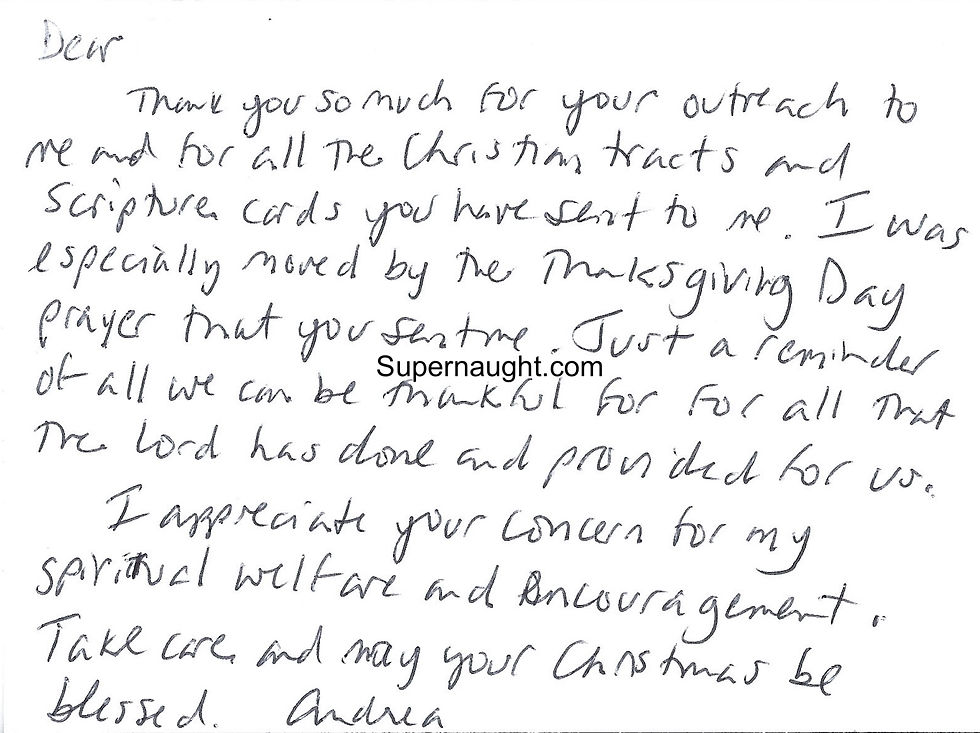 Dear
Thank you so much for your outreach to
me and for all the Christian tracts and
Scripture cards you have sent to me. I was
especially moved by the Thanksgiving Day
prayer that you sent me. Just a reminder
Supernaught.com
of all we can be thankful for for all that
the Lord has done and provided for us.
I appreciate your concern for my
spiritual welfare and encouragement.
Take care and may your Christmas be
blessed. Andrea